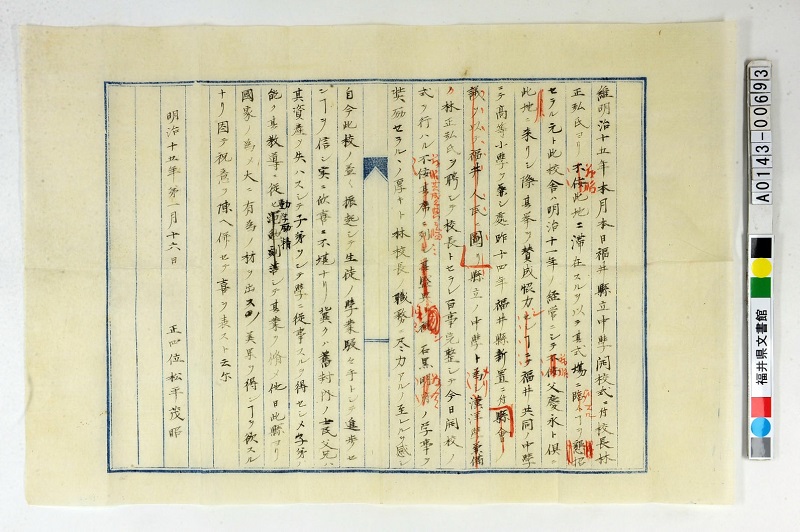 維明治十五年本月本日福井縣立中學開校式ニ付校長林
正弘氏ヨリ不佞此地ニ滞在スルヲ以テ其式場ニ臨ムヿヲ懇招
セラル元ト此校舎ハ明治十一年ノ経営ニシテ不佞父慶永ト倶ニ
此地ニ来リシ際其挙ヲ賛成協力セシ福井共同中學
ニテ高等小學ヲ兼シ処昨十四年福井縣新置ニ付縣會ノ
議ヲ以テ福井人民ト図リ縣立ノ中學ト為シ漢洋學兼備
ノ林正弘氏ヲ聘シテ校長トセラレ百事完整シテ今日開校ノ
式ヲ行ハル不佞其席ニ列シ 石黒 ノ学事ヲ
奨励セラルヽノ厚キト林校長職務ニ尽力アルノ至レルヲ感シ
自今此校ノ益々振起シテ生徒ノ學業駸々乎トシテ進歩セ
ンヿヲ信シ実ニ欣喜ニ不堪ナリ冀クハ舊封内ノ士民父兄ハ
其資産ヲ失ハスシテ子弟ヲシテ學ニ従事スルヲ得セシメ子弟ハ
能ク其教導ニ従ヒ勤学励精シテ其業ヲ脩メ他日此縣ヨリ
國家ノ為メ大ニ有為ノ材ヲ出スノ美果ヲ得ンヿヲ欲スル
ナリ因テ祝意ヲ陳ヘ併セテ喜ヲ表スト云尓
明治十五年第一月十六日
正四位松平茂昭
A0143-00693
福井県文書館